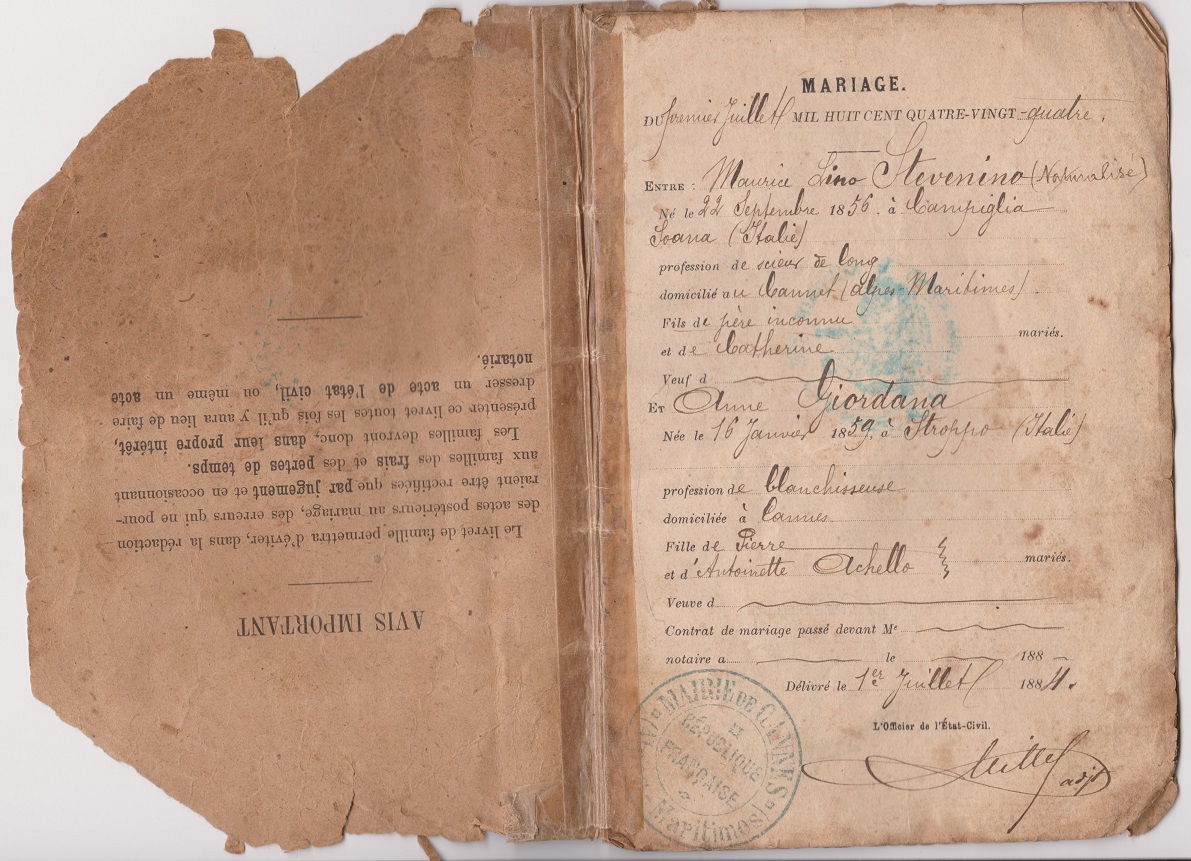 AVIS IMPORTANT
Le livret de famille permettra d'éviter, dans la rédaction
des actes postérieurs au mariage, des erreurs qui ne pour-
raient être rectifiées que par jugement et en occasionnant
aux familles des frais et des pertes de temps.
Les familles devront donc, dans leur propre intérêt,
présenter ce livret toutes les fois qu'il y aura lieu de faire
dresser un acte de l'état civil, ou même un acte
notarié.
MARIAGE.
DU premier Juillet MIL HUIT CENT QUATRE-VINGT-quatre.
ENTRE : Maurice Lino Stevenino (Naturalisé)
Né le 22 Septembre 1856. à Campiglia
Soana (Italie)
profession de scieur de long
domicilié au Cannet (Alpes-Maritimes).
Fils de père inconnu
mariés.
et de Catherine
Veuf d
ET Anne Giordana
Née le 16 Janvier 1859, à Stroppo (Italie)
profession de blanchisseuse
domiciliée à Cannes
Fille de Pierre
mariés.
et d'Antoinette Achello
Veuve d
Contrat de mariage passé devant Me
notaire a le 188
Délivré le 1er Juillet 1884.
L'Officier de l'État-Civil.
adjt
MAIRIE DE CANNES
RÉPUBLIQUE
FRANÇAISE
Maritimes